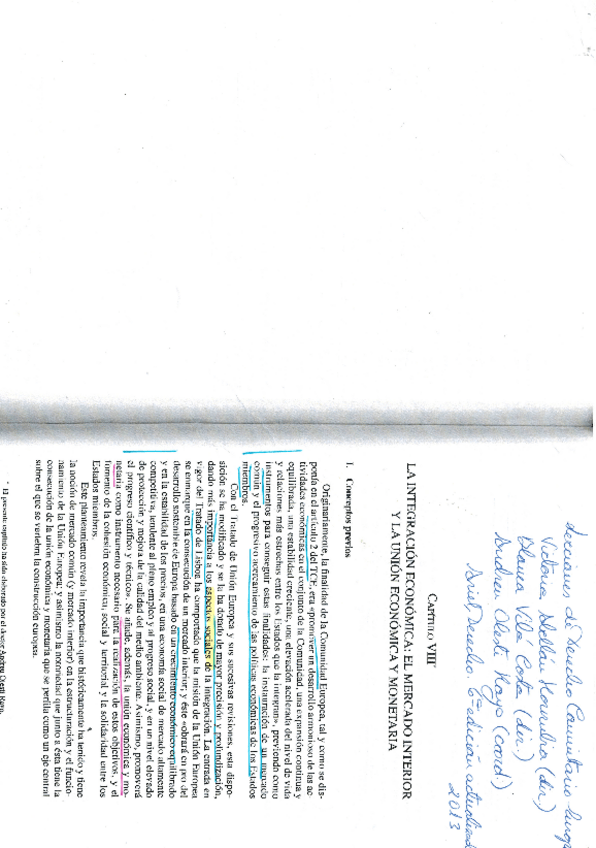 Victòria Abellán Honrubia (dir.)
Blanca Vilà Costa (dir.)
Andreu Olesti Rayo (coord)
6ª edición actualizada
2013
CAPÍTULO VIII*
LA INTEGRACIÓN ECONÓMICA: EL MERCADO INTERIOR
Y LA UNIÓN ECONÓMICA Y MONETARIA
1. Conceptos previos
Originariamente, la finalidad de la Comunidad Europea, tal y como se dis-
ponía en el artículo 2 del TCE, era «promover un desarrollo armonioso de las ac-
tividades económicas en el conjunto de la Comunidad, una expansión continua y
equilibrada, una estabilidad creciente, una elevación acelerada del nivel de vida
y relaciones más estrechas entre los Estados que la integran», previendo como
instrumentos para conseguir estas finalidades: la instauración de un mercado
común y el progresivo acercamiento de las políticas económicas de los Estados
miembros.
Con el Tratado de Unión Europea y sus sucesivas revisiones, esta dispo-
sición se ha modificado y se la ha dotado de mayor precisión y profundización,
dando más importancia a los aspectos sociales de la integración. La entrada en
vigor del Tratado de Lisboa ha comportado que la misión de la Unión Europea
se enmarque en la consecución de un mercado interior, y éste «obrará en pro del
desarrollo sostenible de Europa basado en un crecimiento económico equilibrado
y en la estabilidad de los precios, en una economía social de mercado altamente
competitiva, tendente al pleno empleo y al progreso social, y en un nivel elevado
de protección y mejora de la calidad del medio ambiente. Asimismo, promoverá
el progreso científico y técnico». Se añade, además, la unión económica y mo-
netaria como instrumento necesario para la realización de estos objetivos, y el
fomento de la cohesión económica, social y territorial y la solidaridad entre los
Estados miembros.
Este planteamiento revela la importancia que históricamente ha tenido y tiene
la noción de mercado común (y mercado interior) en la estructuración y el funcio-
namiento de la Unión Europea; y asimismo la notoriedad que junto a éste tiene la
consecución de la unión económica y monetaria que se perfila como un eje central
sobre el que se vertebra la construcción europea.
* El presente capítulo ha sido elaborado por el doctor Andreu Olesti Rayo.